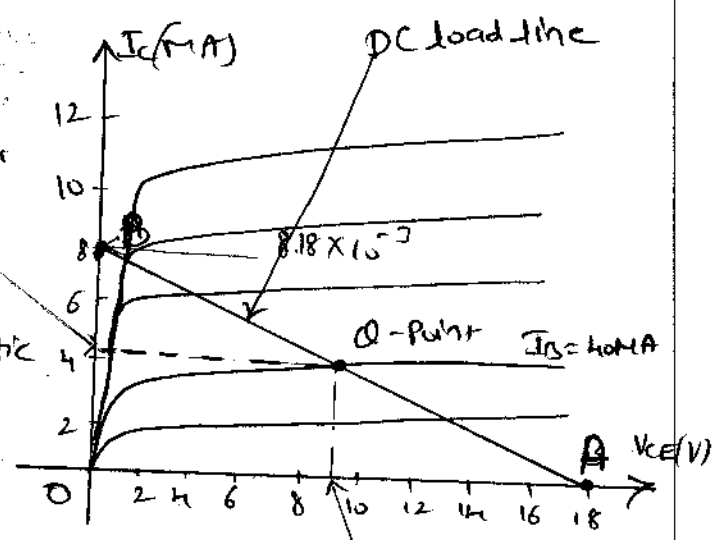 Ic(mA)
DC load line
12
10
B
8
8.18 × 10⁻³
6
Q-Point
IB = 40MA
tic
4
2
A
VCE(V)
0
2 4 6 8 10 12 14 16 18